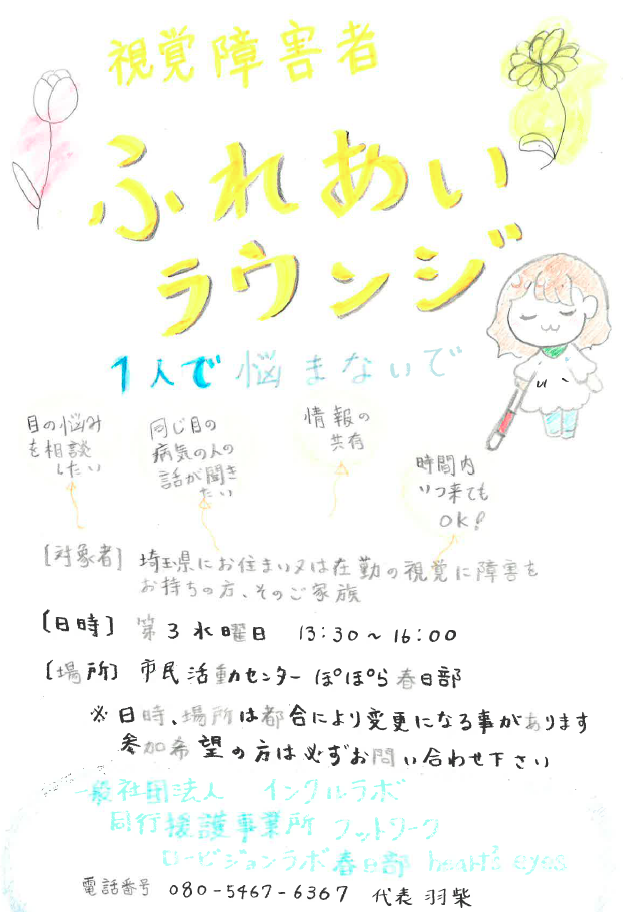 視覚障害者
ふれあい
ラウンジ
1人で悩まないで
目の悩み
を相談
したい
同じ目の
病気の人の
話が聞き
たい
情報の
共有
時間内
いつ来ても
OK!
[対象者] 埼玉県にお住まい又は在勤の視覚に障害を
お持ちの方、そのご家族
[日時] 第3水曜日 13:30~16:00
[場所] 市民活動センターぽぽら春日部
※日時、場所は都合により変更になる事があります
参加希望の方は必ずお問い合わせ下さい
一般社団法人 インクルラボ
同行援護事業所 フットワーク
ロービジョンラボ春日部 heart's eyes
電話番号 080-5467-6367 代表 羽柴